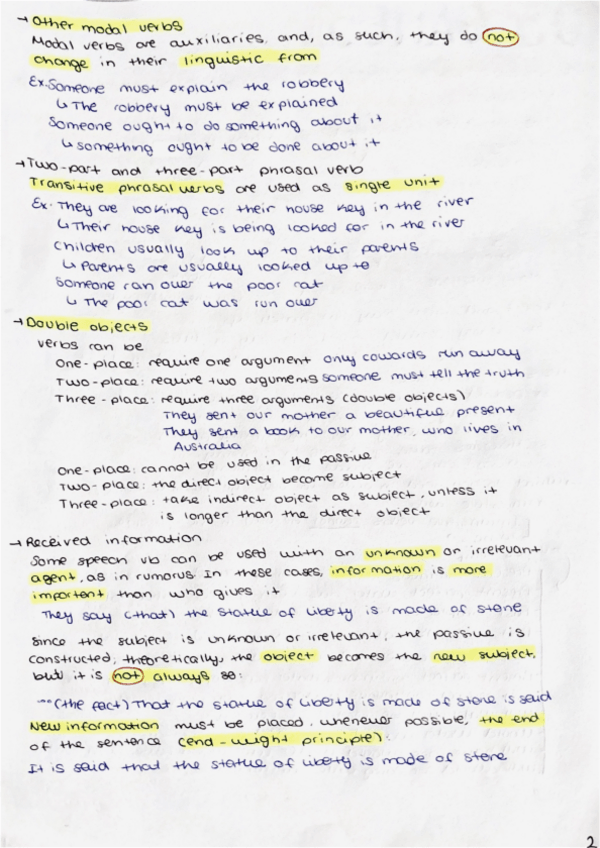 → Other modal verbs
Modal verbs are auxiliaries, and, as such, they do not
change in their linguistic from
Ex. Someone must explain the robbery
↳ The robbery must be explained
Someone ought to do something about it
↳ something ought to be done about it
→ Two-part and three-part phrasal verb
Transitive phrasal verbs are used as single unit
Ex. They are looking for their house key in the river
↳ Their house key is being looked for in the river
Children usually look up to their parents
↳ Parents are usually looked up to
Someone ran over the poor cat
↳ The poor cat was run over
→ Double objects
verbs can be
One-place: require one argument only cowards run away
Two-place: require two arguments someone must tell the truth
Three-place: require three arguments (double objects)
They sent our mother a beautiful present
They sent a book to our mother, who lives in
Australia
One-place: cannot be used in the passive
Two-place: the direct object become subject
Three-place: take indirect object as subject, unless it
is longer than the direct object
→ Received information
Some speech vb can be used with an unknown or irrelevant
agent, as in rumorus. In these cases, information is more
important than who gives it
They say (that) the statue of liberty is made of stone
Since the subject is unknown or irrelevant, the passive is
constructed, theoretically, the object becomes the new subject,
but it is not always so:
(the fact) That the statue of liberty is made of stone is said
New information must be placed, whenever possible, the end
of the sentence (end-weight principle):
It is said that the statue of liberty is made of stone
2